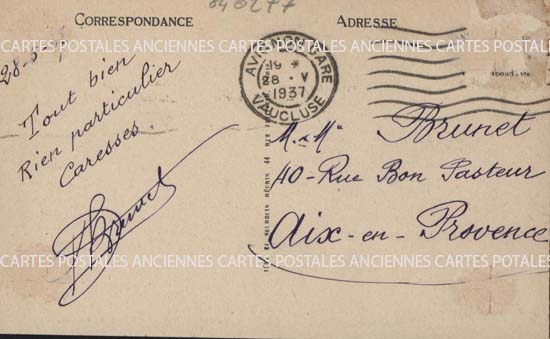 040277
CORRESPONDANCE
ADRESSE
28-5-
Tout bien
Rien particulier
Caresses.
Brunet
AVIGNON GARE
19 *
28 · V
1937
VAUCLUSE
M. Mme Brunet
40-Rue Bon Pasteur
Aix-en-Provence
CARTES POSTALES ANCIENNES CARTES POSTALES ANCIENNES CARTES POSTALES
CARTES POSTALES ANCIENNES CARTES POSTALES ANCIENNES CARTES POSTALES